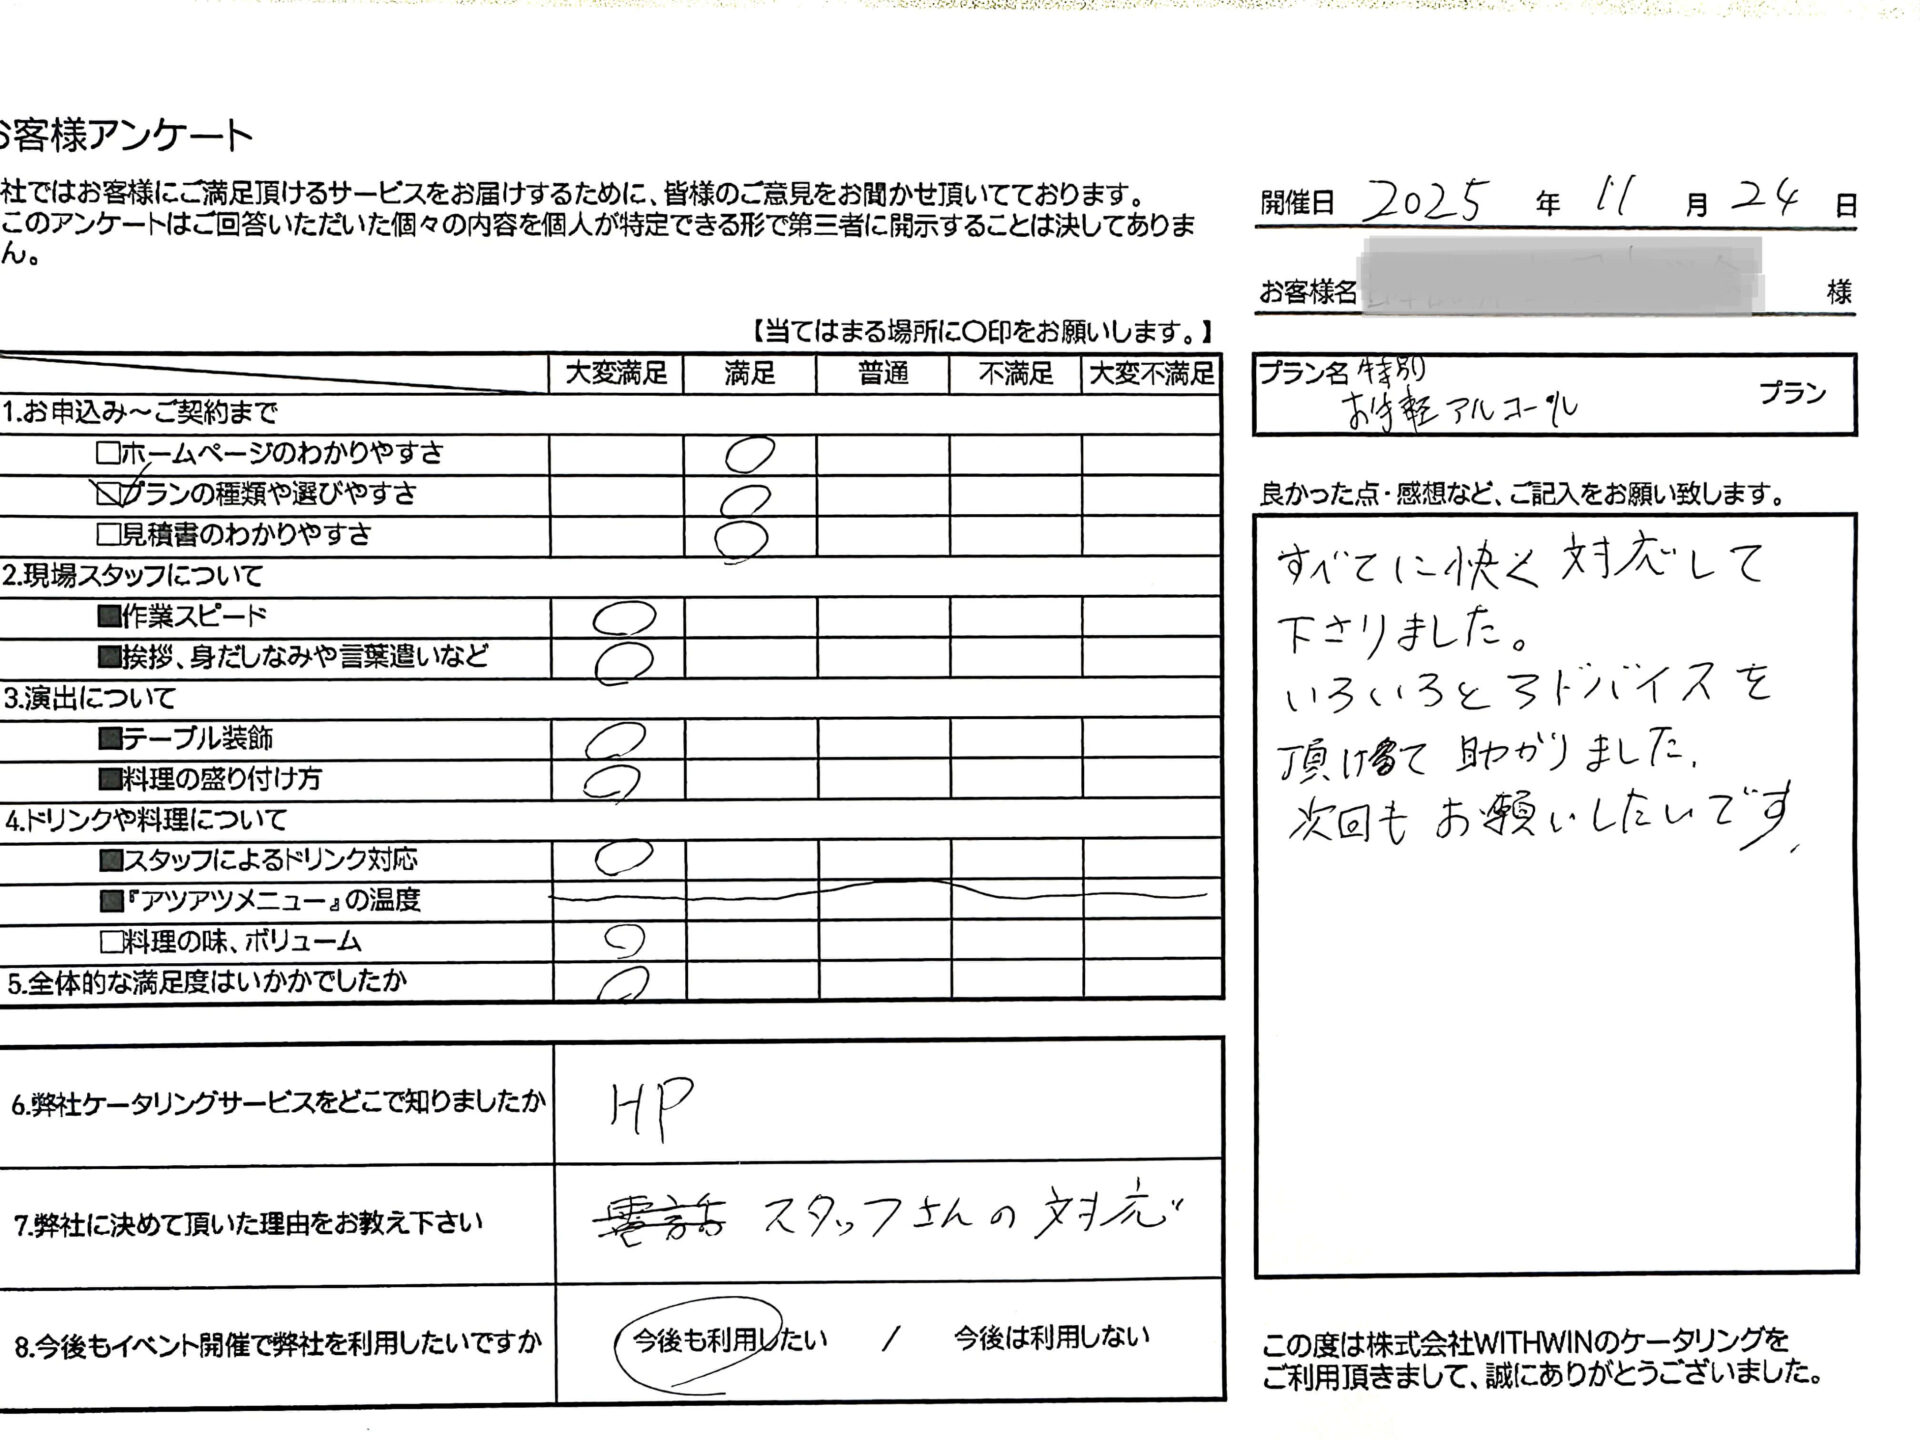 お客様アンケート
社ではお客様にご満足頂けるサービスをお届けするために、皆様のご意見をお聞かせ頂いてております。
このアンケートはご回答いただいた個々の内容を個人が特定できる形で第三者に開示することは決してありま
ん。
開催日 2025 年 11 月 24 日
お客様名 様
【当てはまる場所に〇印をお願いします。】
大変満足 満足 普通 不満足 大変不満足
1.お申込み～ご契約まで
□ホームページのわかりやすさ ○
☑プランの種類や選びやすさ ○
□見積書のわかりやすさ ○
2.現場スタッフについて
■作業スピード ○
■挨拶、身だしなみや言葉遣いなど ○
3.演出について
■テーブル装飾 ○
■料理の盛り付け方 ○
4.ドリンクや料理について
■スタッフによるドリンク対応 ○
■『アツアツメニュー』の温度
□料理の味、ボリューム ○
5.全体的な満足度はいかかでしたか ○
6.弊社ケータリングサービスをどこで知りましたか HP
7.弊社に決めて頂いた理由をお教え下さい 電話 スタッフさんの対応
8.今後もイベント開催で弊社を利用したいですか 今後も利用したい / 今後は利用しない
プラン名 特別
お手軽アルコール プラン
良かった点・感想など、ご記入をお願い致します。
すべてに快く対応して
下さりました。
いろいろとアドバイスを
頂けて助かりました.
次回もお願いしたいです.
この度は株式会社WITHWINのケータリングを
ご利用頂きまして、誠にありがとうございました。